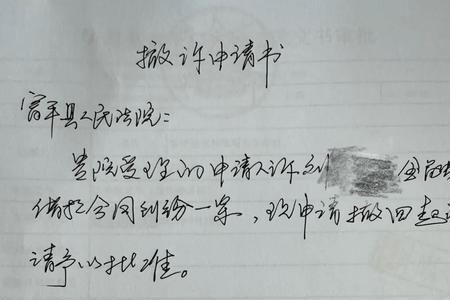 撤诉申请书
富平县人民法院：
贵院受理的申请人诉刘 金融
借款合同纠纷一案，现申请撤回起
请予以批准。